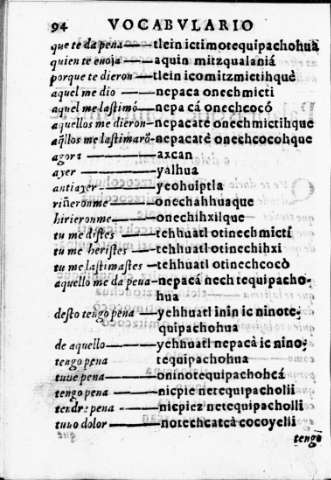 94 VOCABVLARIO
que te da pena — tlein ictimotequipachohua
quien te enoja — aquin mitzqualaniá
porque te dieron — tlein icomitzmictihquè
aquel me dio — nepaca onechmicti
aquel me lastimó — nepa cá onechcocó
aquellos me dieron — nepacatè onechmictihque
aq̃llos me lastimarõ — nepacatè onechcocohque
agora — axcan
ayer — yalhua
antiayer — yeohuiptla
riñeronme — onechahhuaque
hirieronme — onechihxilque
tu me distes — tehhuatl otinechmictí
tu me heristes — tehhuatl otinechihxi
tu me lastimastes — tehhuatl otinechcocò
aquello me da pena — nepacá nech tequipacho-
hua
desto tengo pena — yehhuatl inin ic ninote-
quipachohua
de aquello — yehhuatl nepacà ic nino-
tengo pena tequipachohua
tuue pena — oninotequipachohcá
tengo pena — nicpie netequipacholli
tendre pena — nicpiez netequipacholli
tubo dolor — notechcatcà cocoyelli
tengo